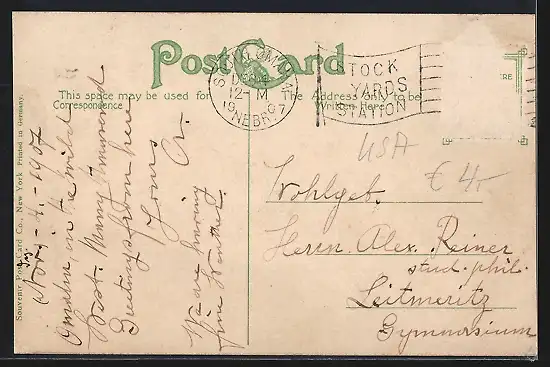 Post Card
This space may be used for
Correspondence
The Address only to be
Written Here
SOUTH OMAHA
12-M
NEBR.
STOCK
YARDS
STATION
ERE
USA
€ 4,-
Souvenir Post Card Co., New York Printed in Germany.
1907
Omaha, in the wild
West. Many thousand
Greetings from here
Yours
We are having
fine Weather.
Wohlgeb.
Herrn Alex. Reiner
stud. phil.
Leitmeritz
Gymnasium